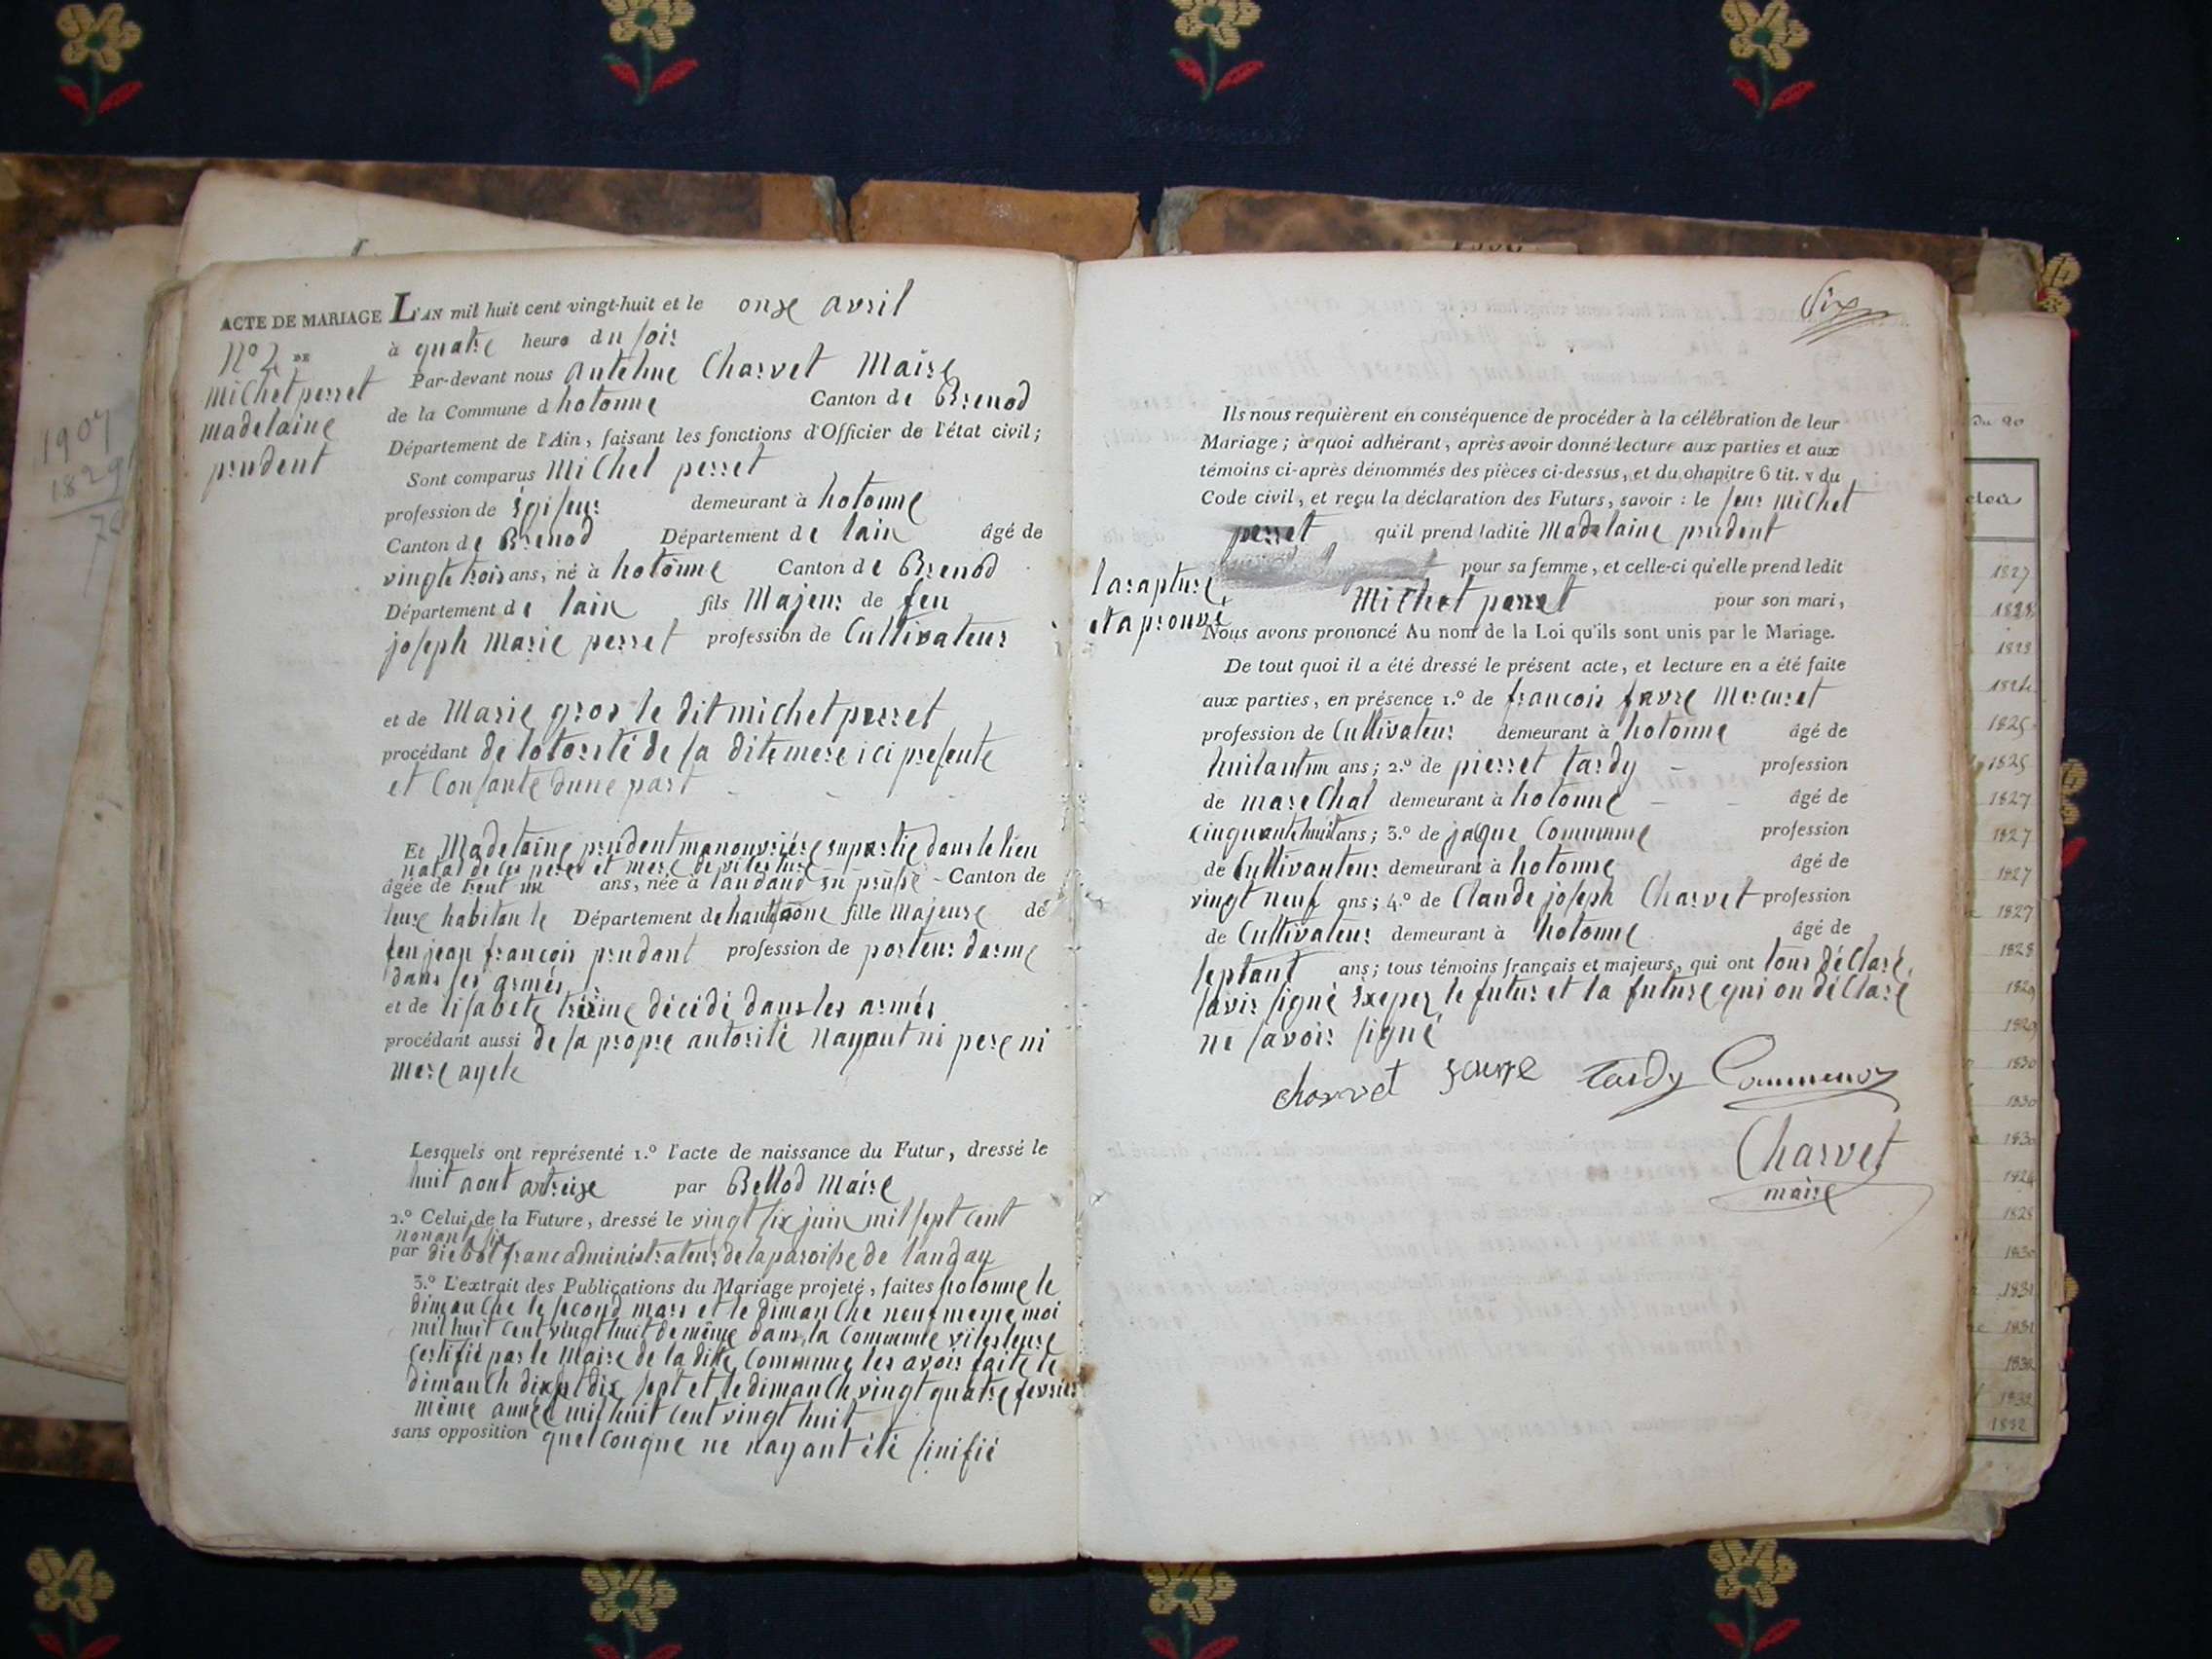 ACTE DE MARIAGE
N° 2 DE
michel perret
madelaine
prudent
L'AN mil huit cent vingt-huit et le onze avril
à quatre heure du soir
Par-devant nous antelme Charvet Maire
de la Commune d hotonne Canton de Brenod
Département de l'Ain, faisant les fonctions d'Officier de l'état civil;
Sont comparus Michel perret
profession de demeurant à hotonne
Canton de Brenod Département de lain âgé de
vingt trois ans, né à hotonne Canton de Brenod
Département de lain fils Majeur de feu
joseph Marie perret profession de Cultivateur
et de Marie gros le dit michel perret
procédant de lotorité de sa dite mere ici presente
et Consante dune part
Et Madelaine prudent manouvriére suportie dans le lieu
natal de ces peres et mere de viles
âgée de trent un ans, née à landaud en pruse - Canton de
leure habiton le Département de haut saone fille Majeure de
feu jean francois prudant profession de porteur darme
dans les armés
et de lisabete décédé dans les armés
procédant aussi de sa propre autorité nayant ni pere ni
mere ayele
Lesquels ont représenté 1.° l'acte de naissance du Futur, dressé le
huit aout an treize par Bellod Maire
2.° Celui de la Future, dressé le vingt six juin mil sept cent
nonant six
par diebol franc administrateur de la paroisse de landau
3.° L'extrait des Publications du Mariage projeté, faites hotonne le
dimanche le second mars et le dimanche neuf meme moi
mil huit cent vingt huit de même dans la Commune
Certifié par le Maire de la ditte Commune les avoir faite le
dimanch dix sept et le dimanch vingt quatre fevrier
même année mil huit cent vingt huit
sans opposition quelconque ne nayant été sinifié
Six
Ils nous requièrent en conséquence de procéder à la célébration de leur
Mariage; à quoi adhérant, après avoir donné lecture aux parties et aux
témoins ci-après dénommés des pièces ci-dessus, et du chapitre 6 tit. v du
Code civil, et reçu la déclaration des Futurs, savoir: le sieur Michel
perret qu'il prend ladite Madelaine prudent
pour sa femme, et celle-ci qu'elle prend ledit
larapture
et aprouvé
Michel perret pour son mari,
Nous avons prononcé Au nom de la Loi qu'ils sont unis par le Mariage.
De tout quoi il a été dressé le présent acte, et lecture en a été faite
aux parties, en présence 1.° de francois favre Mercuret
profession de Cultivateur demeurant à hotonne âgé de
huitantun ans; 2.° de pierret tardy - profession
de marechal demeurant à hotonne - - âgé de
cinquante huit ans; 3.° de jaque Commune profession
de Cultivauteur demeurant à hotonne âgé de
vingt neuf ans; 4.° de Claude joseph Charvet profession
de Cultivateur demeurant à hotonne âgé de
septant ans; tous témoins français et majeurs, qui ont tous déClaré
savir signé le futur et la future qui on déClaré
ne savoir signé
charvet favre tardy
Charvet
maire
1907
1829
1827
1825
1827
1827
1827
1827
1828
1829
1829
1830
1830
1830
1828
1830
1831
1831
1832
1832